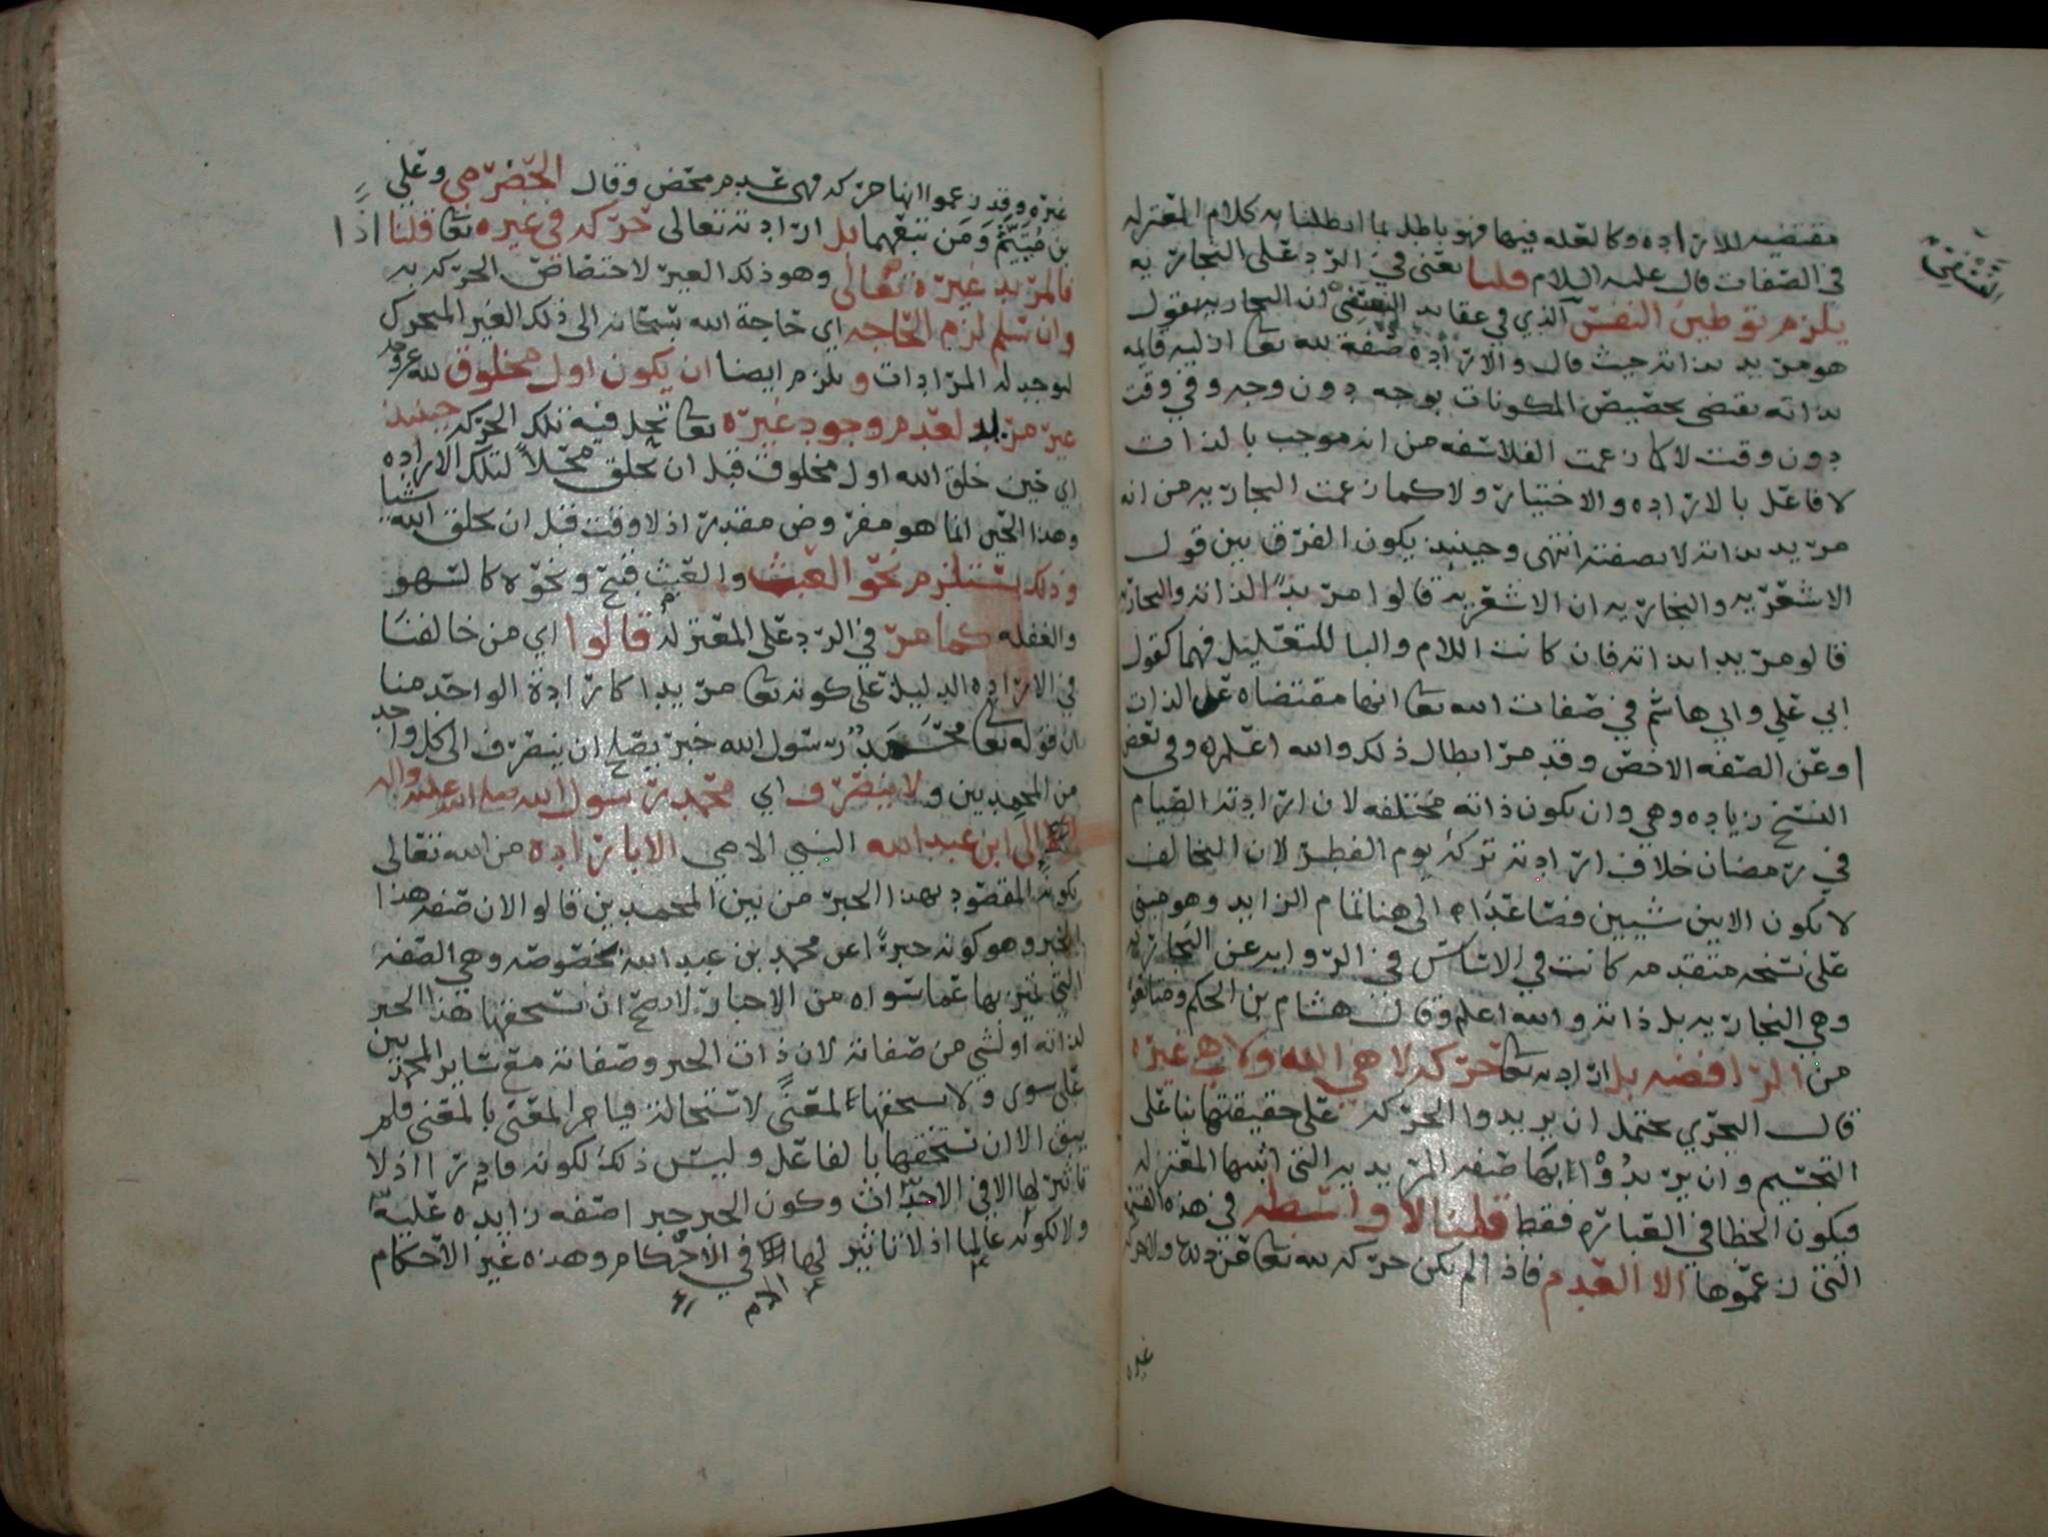 مقتضيه للارادة وكالعله فيها فهو باطل بما ابطلنا به كلام المعتزله
في الصفات قال عليه السلام قلنا يعني في الرد على النجاريه
يلزم توطين النفس الذي في عقايد النسفي ان النجاريه بقول
النسفي
هو مريد بذاته حيث قال والارادة صفة لله تعا ازليه قايمه
بذاته تقتضي تخصيص المكونات بوجه دون وجه وفي وقت
دون وقت لا كما زعمت الفلاسفه من انه موجب بالذات
لا فاعل بالارادة والاختيار ولا كما زعمت النجاريه من انه
مريد بذاته لا بصفته انتهى وحينيذ يكون الفرق بين قول
الاشعريه والنجاريه ان الاشعريه قالوا مريدًا لذاته والنجاريه
قالو مريد بذاته فان كانت اللام والبا للتعليل فهما كقول
ابي علي وابي هاشم في صفات الله تعا انها مقتضاه عن الذات
او عن الصفه الاخص وقد مر ابطال ذلك والله اعلم وفي بعض
النسخ زياده وهي وان يكون ذاته مختلفه لان ارادته الصيام
في رمضان خلاف ارادته تركه يوم الفطر لان التخالف
لا يكون الا بين شيين فصاعدًا الى هنا تمام الزايد وهو مبني
على نسخه متقدمه كانت في الاساس في الروايه عن النجاريه
وهي النجاريه بل ذاته والله اعلم وقال هشام بن الحكم ومتابعوه
من الرافضه بل ارادته تعا حركه لا هي الله ولا هي غيره
قال البحري يحتمل ان يريدوا الحركه على حقيقتها بنا على
التجسيم وان يريدوا بها صفه المريديه التي اثبتها المعتزله
فيكون الخطا في العباره فقط قلنا لا واسطه في هذه القسمه
التي زعموها الا العدم فاذا لم يكن حركه لله تعا
غيره
غيره وقد زعموا انها حركه فهي عدم محض وقال الحضرمي وعلي
بن ميثم ومن تبعهما بل ارادته تعالى حركه في غيره تعا قلنا اذًا
فالمريد غيره تعالى وهو ذلك الغير لاختصاص الحركه به
وان سلم لزم الحاجه اي حاجة الله سبحانه الى ذلك الغير المتحرك
ليوجد له المرادات ويلزم ايضا ان يكون اول مخلوق لله عز وجل
غير مريد لعدم وجود غيره تعا تحل فيه تلك الحركه حينيذ
اي حين خلق الله اول مخلوق قبل ان يخلق محلاً لتلك الاراده
وهذا الحين انما هو مفروض مقدر اذ لا وقت قبل ان يخلق الله شيا
وذلك يستلزم نحو العبث والعبث قبيح ونحوه كالسهو
والغفله كما مر في الرد على المعتزله قالوا اي من خالفنا
في الاراده الدليل على كونه تعا مريدا كارادة الواحد منا
ان قوله تعا محمد رسول الله خبر يصلح ان ينصرف الى كل واحد
من المحمدين ولا ينصرف اي محمد رسول الله صلى الله عليه واله
الى ابن عبد الله النبي الامي الا بارادة من الله تعالى
لكونه المقصود بهذا الخبر من بين المحمدين قالوا لان صفه هذا
الخبر وهو كونه خبرًا عن محمد بن عبد الله مخصوصه وهي الصفه
التي تميز بها عما سواه من الاخبار لا يصح ان يستحقها هذا الخبر
لذاته او لشي من صفاته لان ذات الخبر وصفاته مع ساير المحمدين
على سوى ولا يستحقها لمعنًى لاستحالة قيام المعنى بالمعنى فلم
يبق الا ان يستحقها بالفاعل وليس ذلك لكونه قادرا اذ لا
تاثير لها الا في الاحداث وكون الخبر خبرا صفه زايده عليه
ولا لكونه عالما اذ لا تاثير لها في الاحكام وهذه غير الاحكام